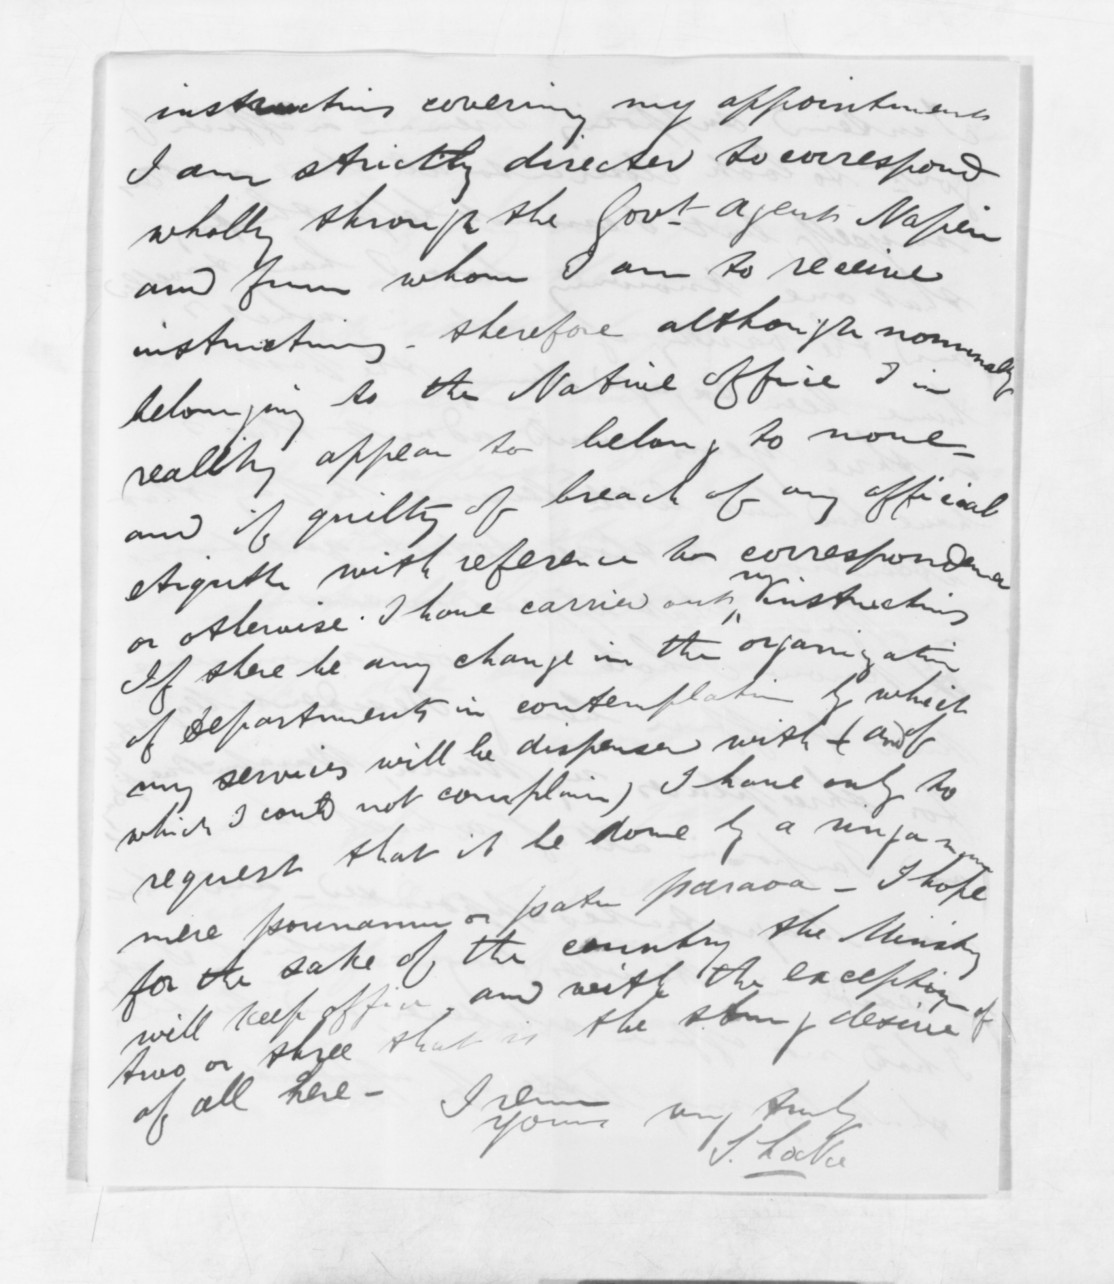 instructions covering my appointment
I am strictly directed to correspond
wholly through the Govt Agent Napier
and from whom I am to receive
instructions - therefore although nominally
belonging to the Native Office I in
reallity appear to belong to none -
and if guilty of breach of any official
etiquette with reference to correspondence
or otherwise. I have carried out my instructions
If there be any change in the organization
of departments in contemplation by which
my services will be dispensed with (and of
which I could not complain) I have only to
request that it be done by a
mere pounamu or patu paraoa - I hope
for the sake of the country the Ministry
will keep office, and with the exception of
two or three that is the strong desire
of all here -
I remain
yours very truly
S. Locke